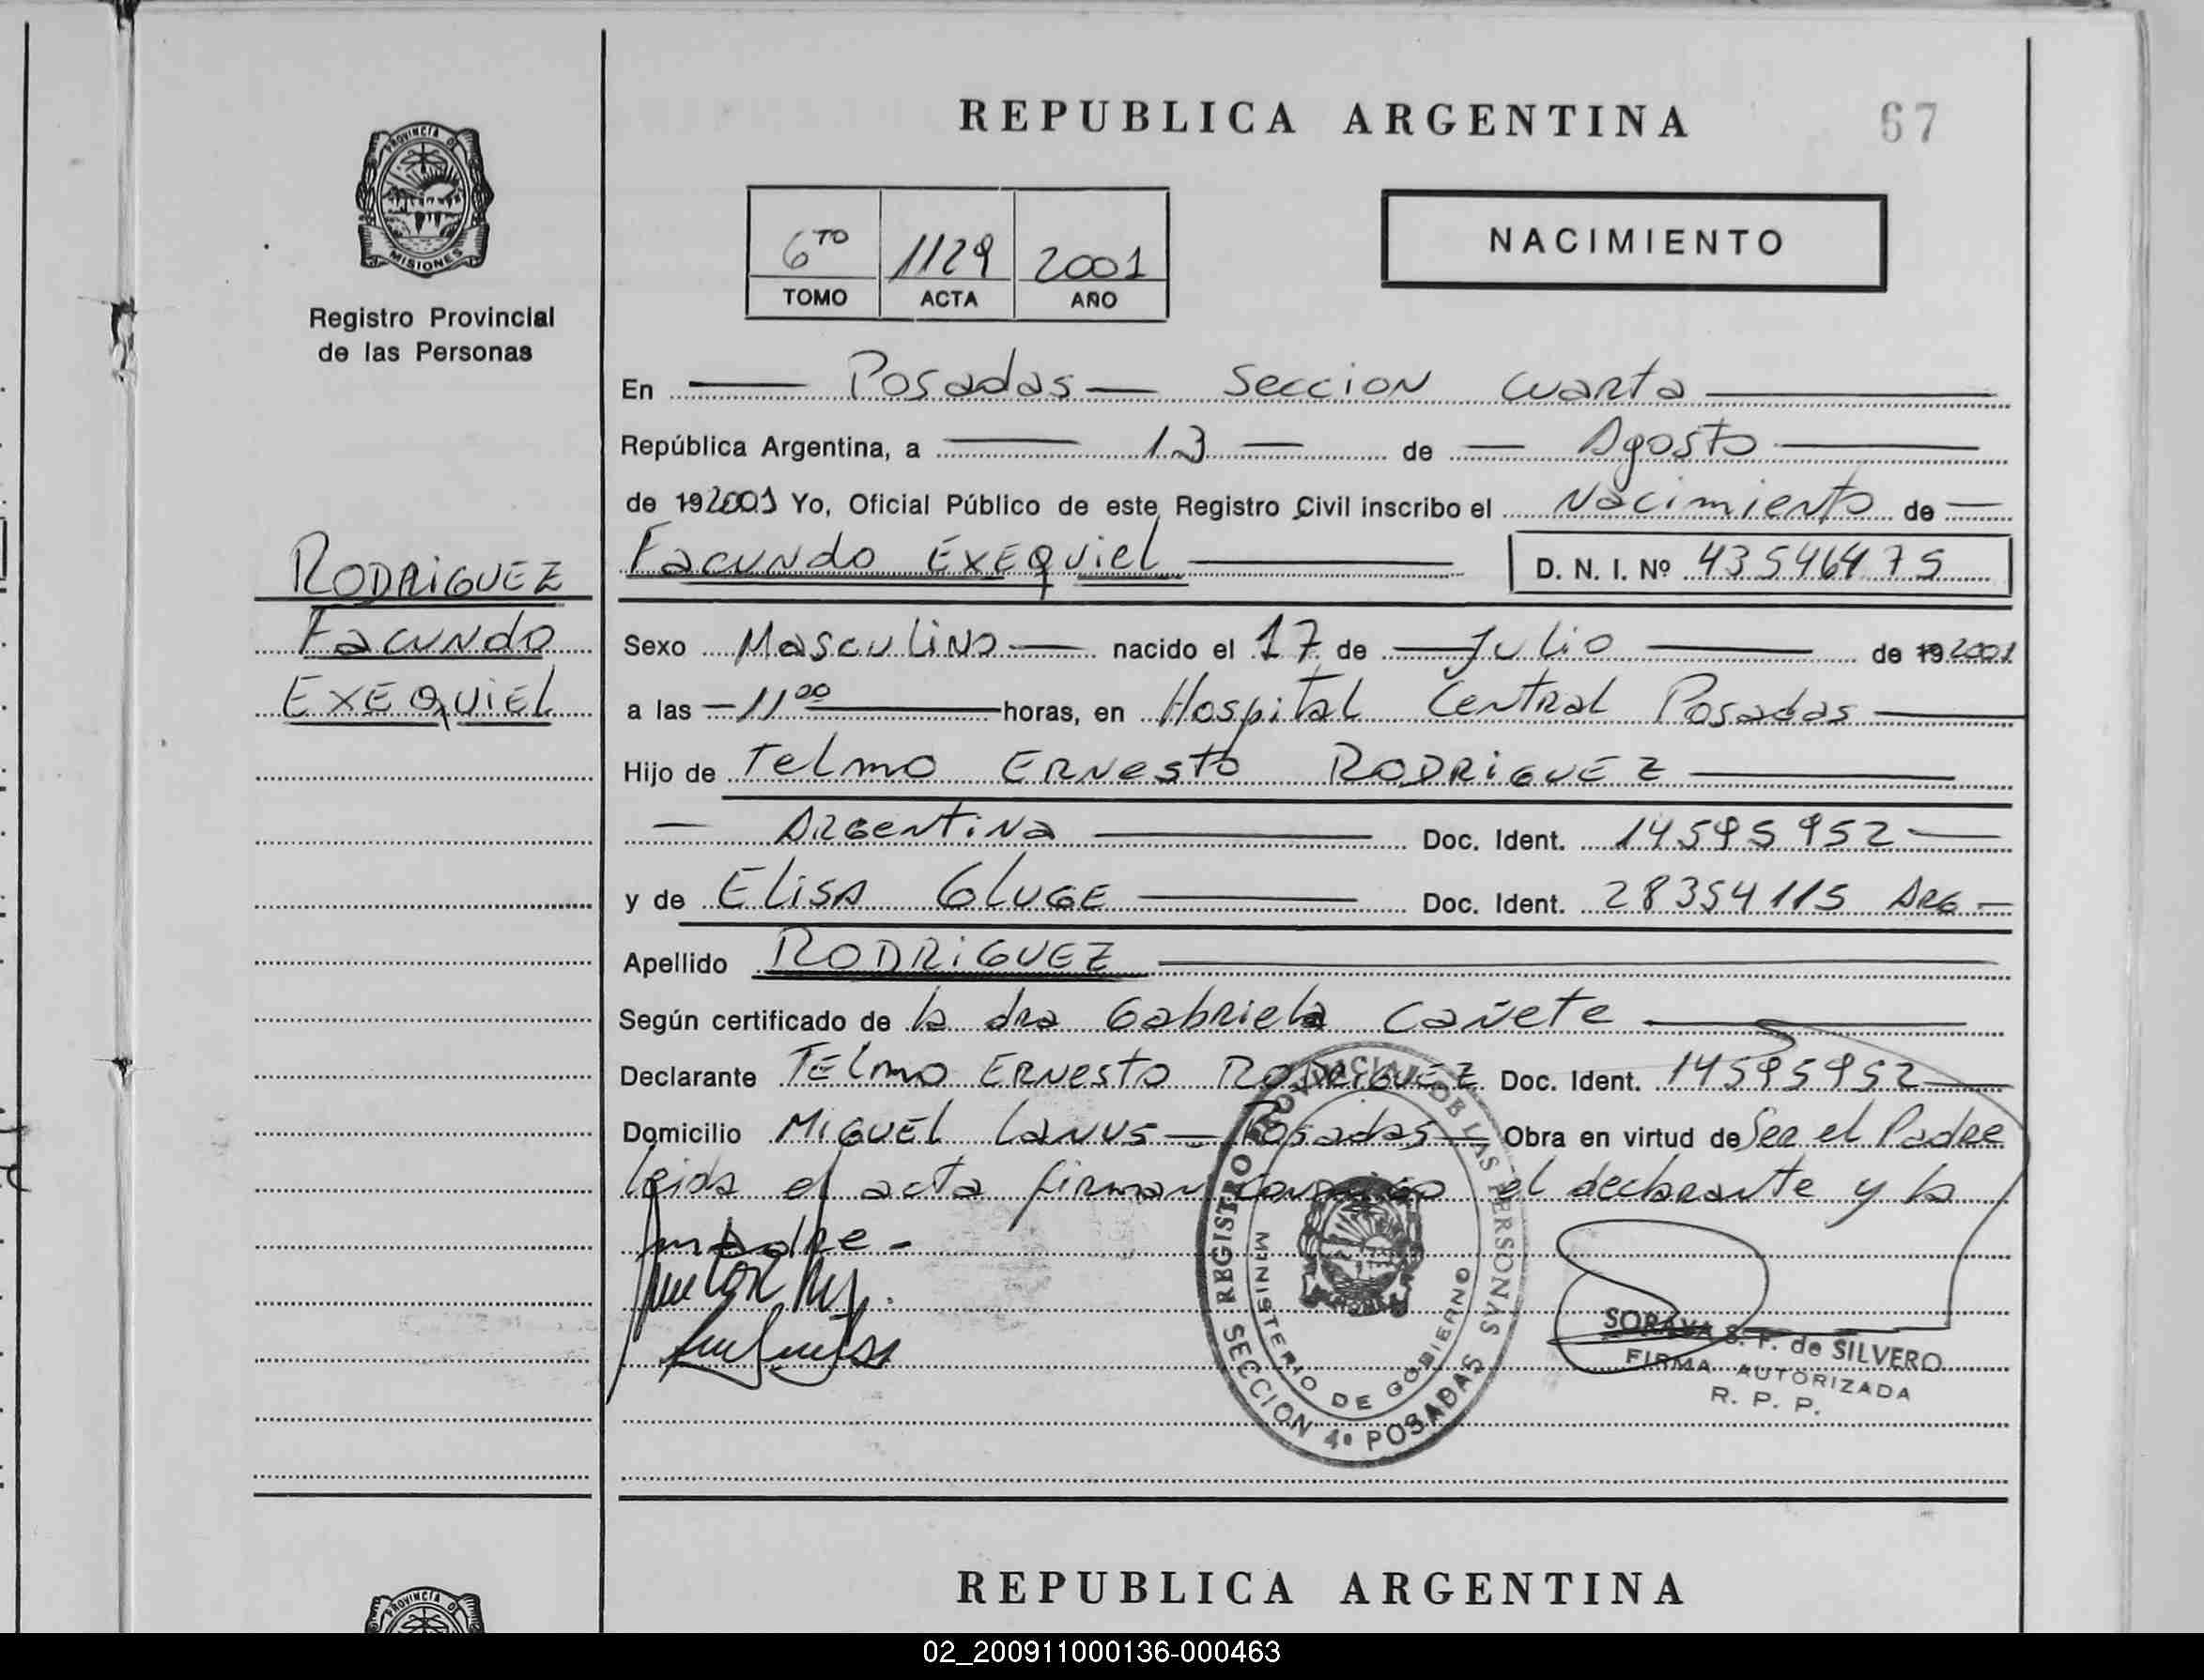 REPUBLICA ARGENTINA
67
PROVINCIA DE
MISIONES
Registro Provincial
de las Personas
6TO 1129 2001
TOMO ACTA AÑO
NACIMIENTO
En Posadas — Seccion Cuarta
República Argentina, a 13 de Agosto
de 192001 Yo, Oficial Público de este Registro Civil inscribo el Nacimiento de
Facundo Exequiel D. N. I. Nº 43546475
RODRIGUEZ
Facundo
EXEQUIEL
Sexo Masculino nacido el 17 de Julio de 19 2001
a las 11 00 horas, en Hospital Central Posadas
Hijo de Telmo Ernesto RODRIGUEZ
Argentina Doc. Ident. 14595952
y de Elisa GLUGE Doc. Ident. 28354115 ARG
Apellido RODRIGUEZ
Según certificado de la dra Gabriela Cañete
Declarante TElmo ERNesto RODRIGUEZ Doc. Ident. 14595952
Domicilio MIGUEL LANUS — Posadas — Obra en virtud de Ser el Padre
leida el acta firman conmigo el declarante y la
madre -
REGISTRO PROVINCIAL DE LAS PERSONAS
MINISTERIO DE GOBIERNO
SECCION 4ª POSADAS
SORAYA S. F. de SILVERO
FIRMA AUTORIZADA
R. P. P.
REPUBLICA ARGENTINA
PROVINCIA DE
02_200911000136-000463